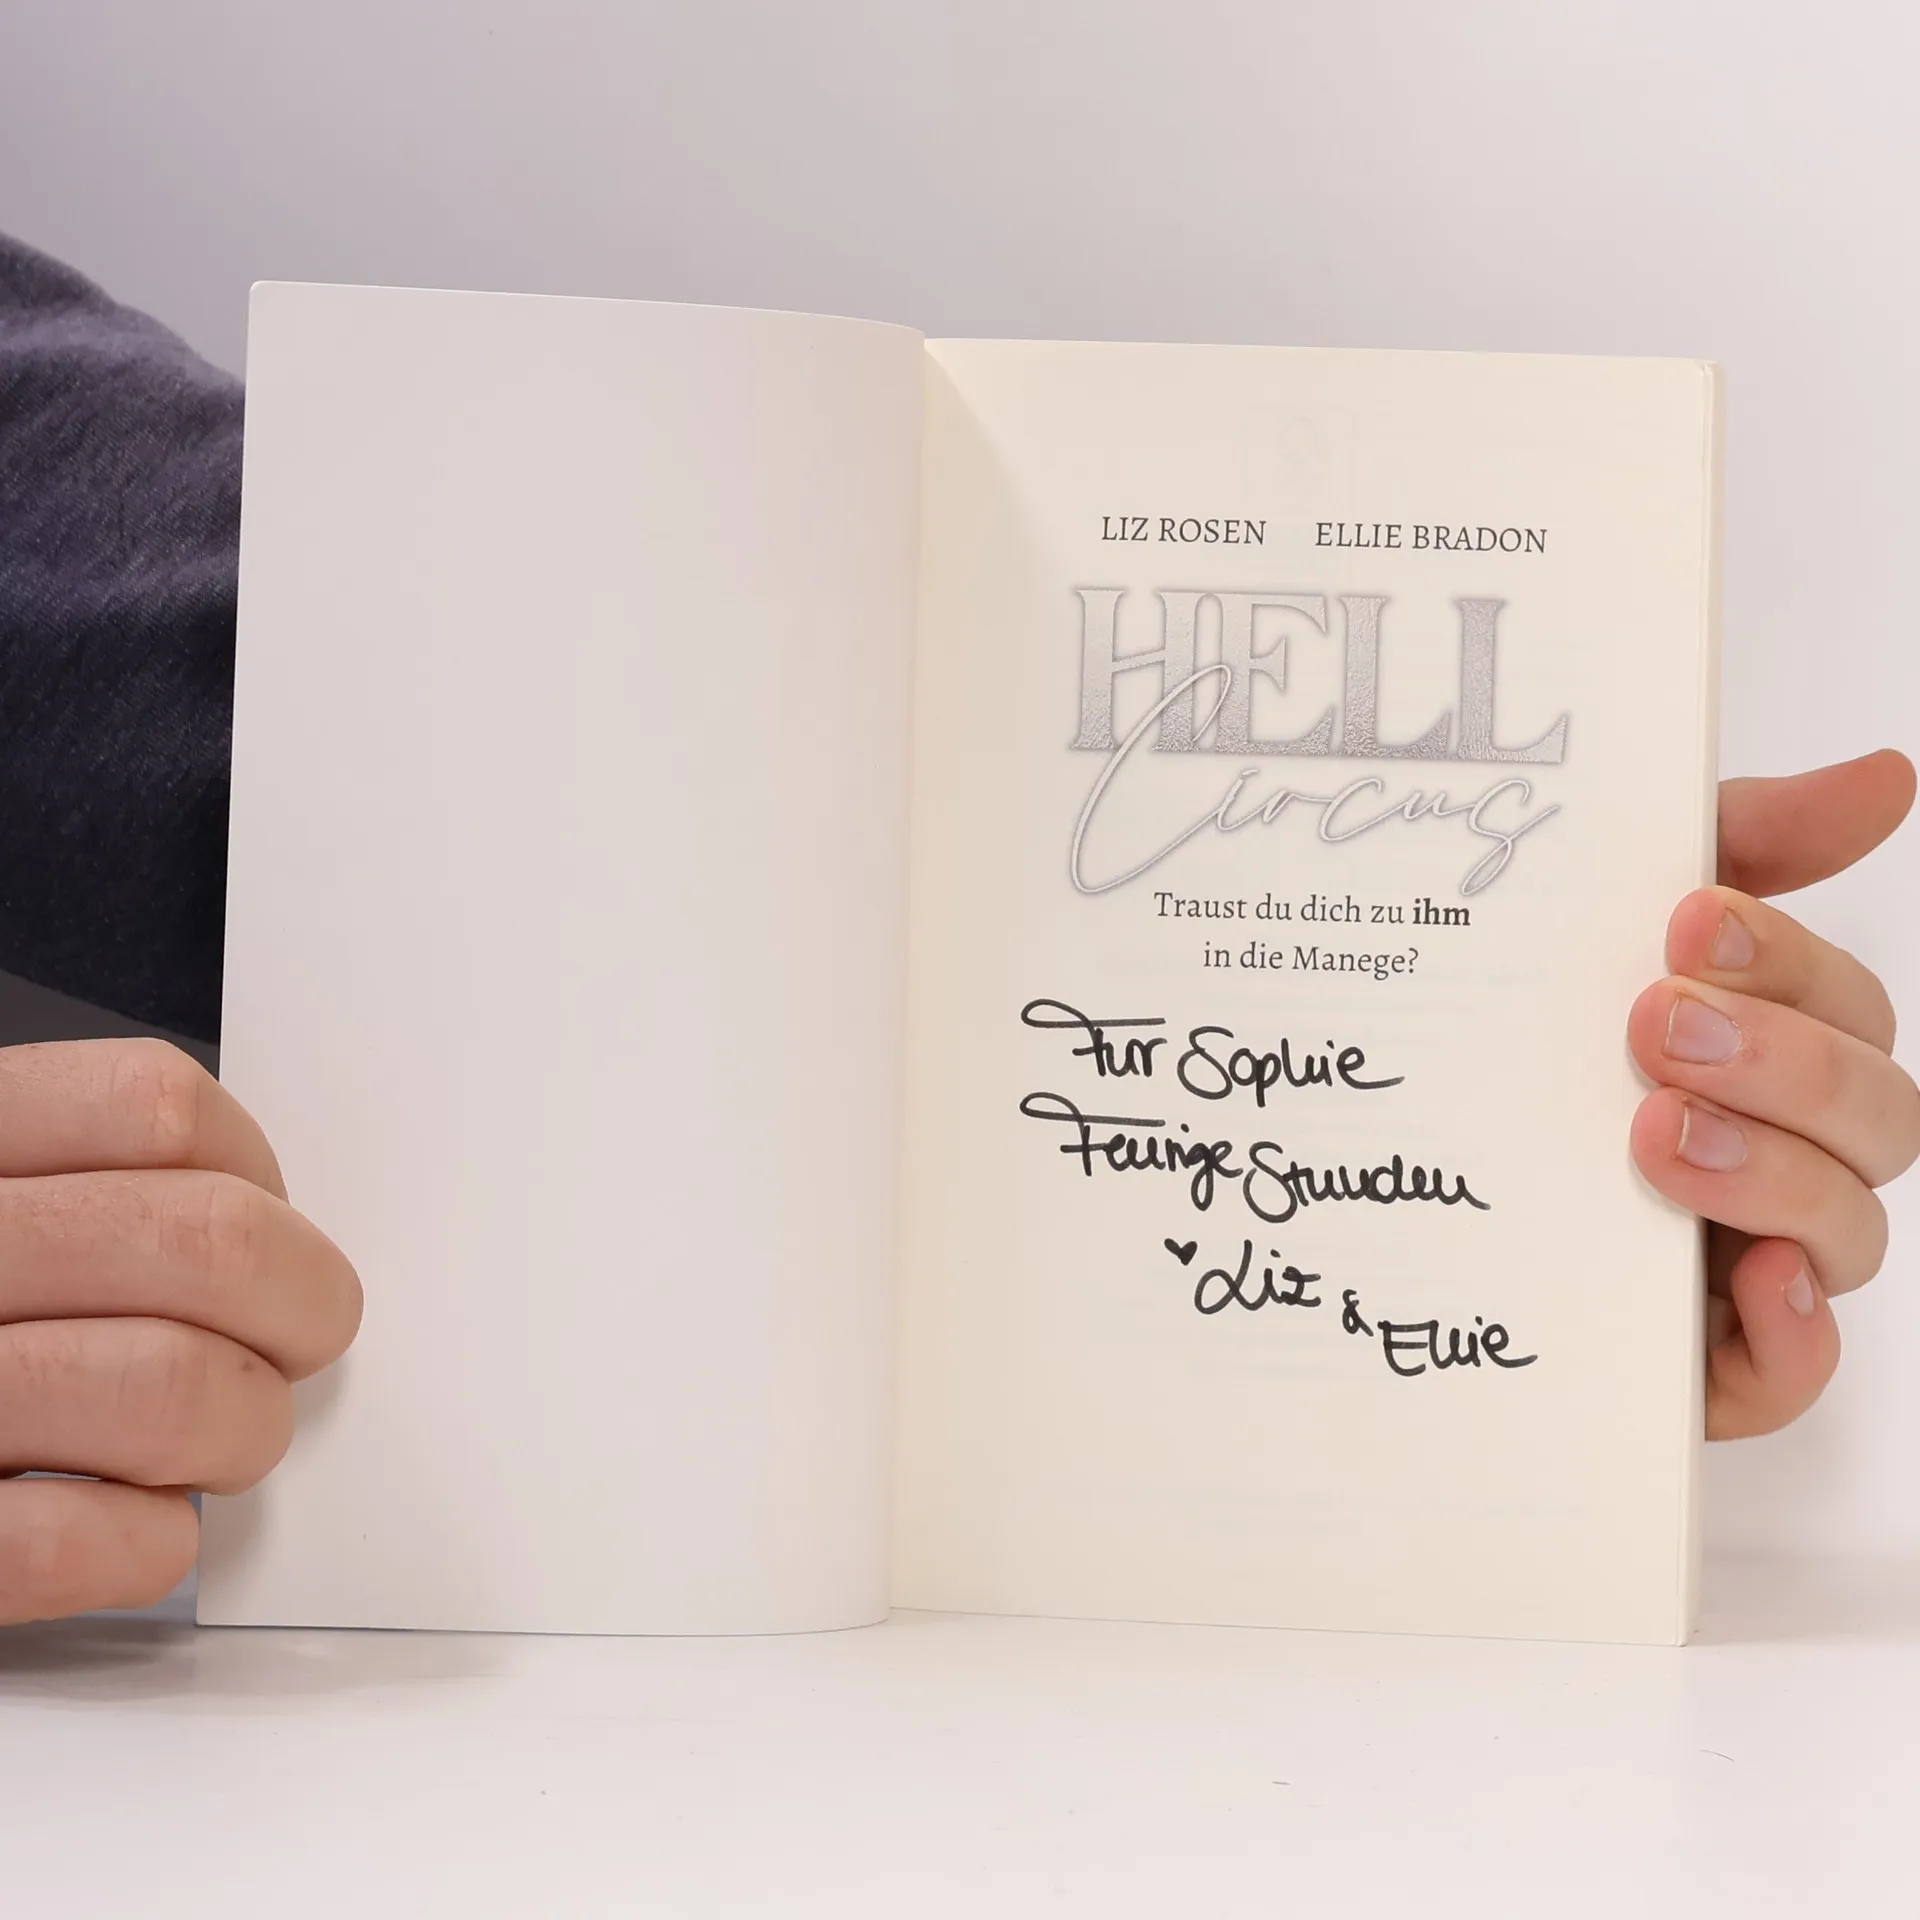 LIZ ROSEN ELLIE BRADON
HELL
Circus
Traust du dich zu ihm
in die Manege?
Für Sophie
Feurige Stunden
♥ Liz & Ellie